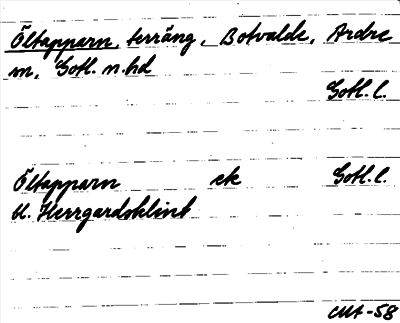 Öltapparn, terräng, Botvalde, Ardre
m, Gotl. n. hd
Gotl. l.
Öltapparn ek Gotl. l.
Kl. Herrgardsklint
CMA-58